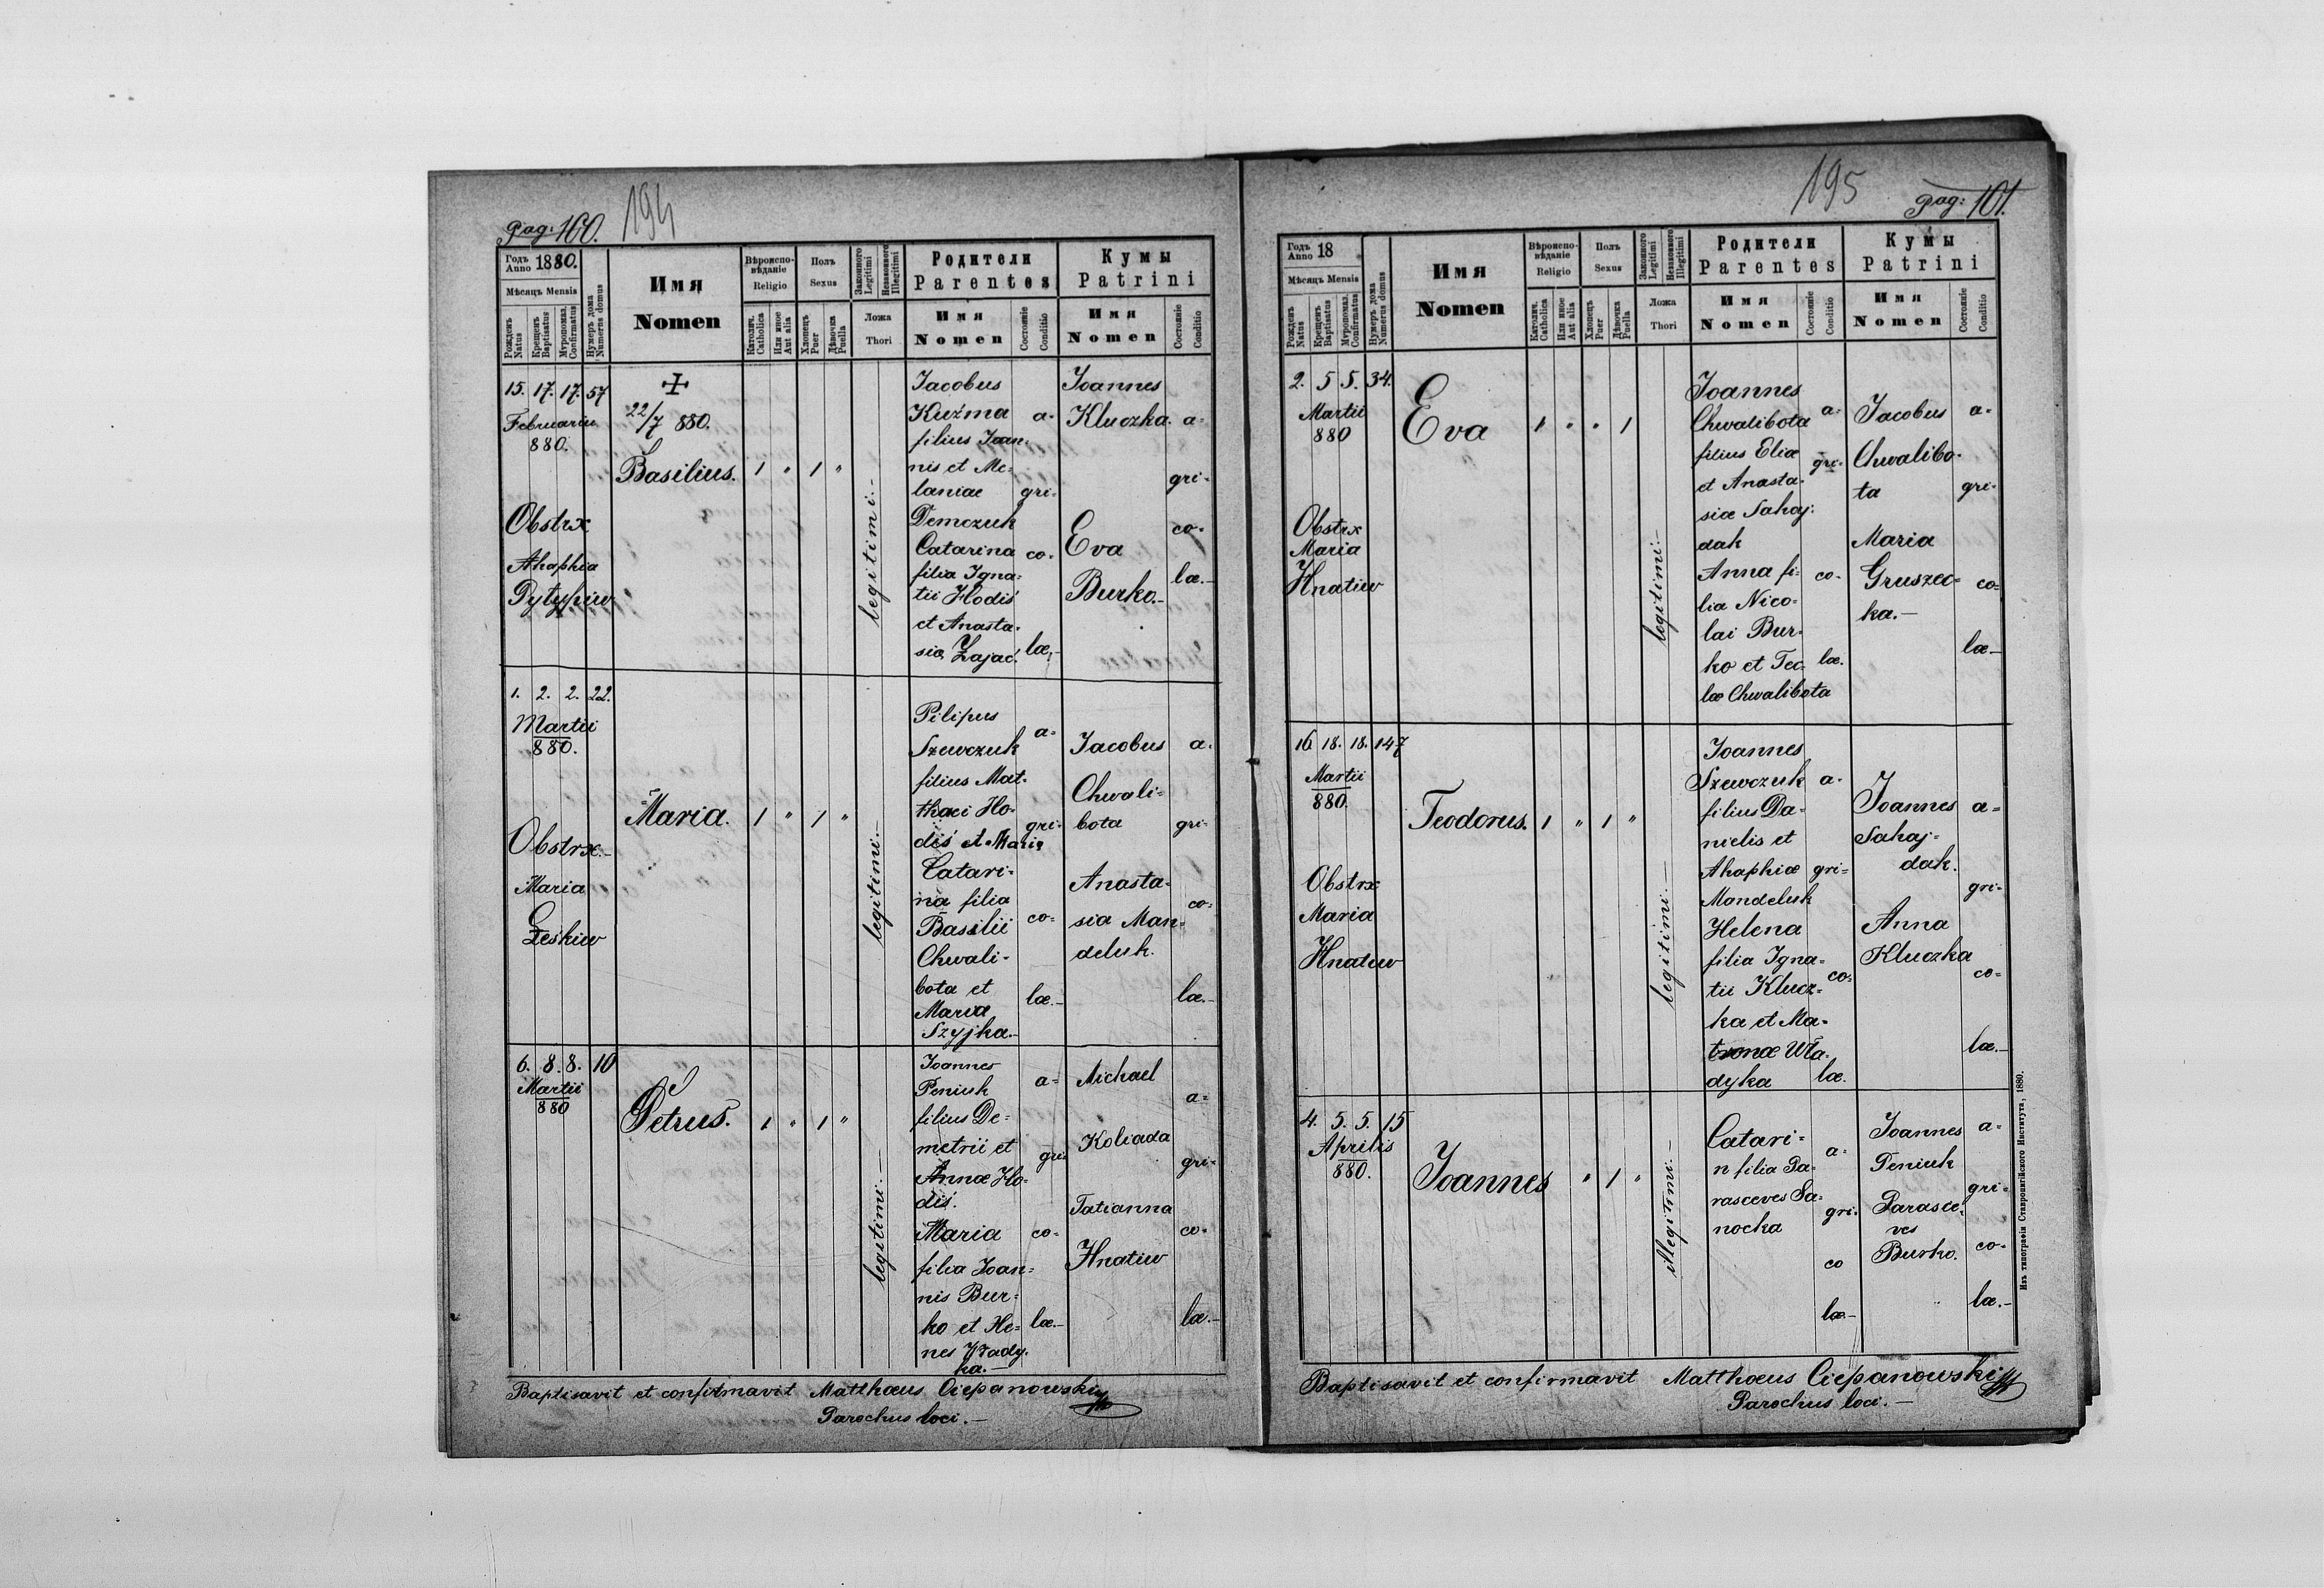 Pag: 160. 194
Годъ Anno 1880.
Мѣсяцъ Mensis
Рожденъ Natus
Крещенъ Baptisatus
Мѵропомаз. Confirmatus
Нумеръ дома Numerus domus
Имя
Nomen
Вѣроисповѣданіе
Religio
Католич. Catholica
Или иное Aut alia
Полъ
Sexus
Хлопецъ Puer
Дѣвочка Puella
Законного Legitimi
Незаконного Illegitimi
Ложа
Thori
Родители
Parentes
Имя
Nomen
Состояніе Conditio
Кумы
Patrini
Имя
Nomen
Состояніе Conditio
15. 17. 17. 57
Februarii
880.
Obstrx
Ahaphia
22/7 880.
Basilius.
1 " 1 "
legitimi:-
Jacobus
Kuźma
filius Joan-
nis et Me-
laniae
Demczuk
Catarina
filia Igna-
tii Hodiś
et Anasta-
siæ Zajać.
a-
gri-
co-
læ.-
Joannes
Kluczka.
Eva
Burko.-
a-
gri-
co-
læ.-
1. 2. 2. 22.
Martii
880.
Obstrx.-
Maria
Leskiw
Maria.
1 " 1 "
legitimi:-
Pilipus
Szewczuk
filius Mat-
thaei Ho-
diś et Maria
Catari-
na filia
Basilii
Chwali-
bota et
Maria
Szyjka.-
a-
gri-
co-
læ.-
Jacobus
Chwali-
bota
Anasta-
sia Man-
deluk.
a-
gri-
co-
læ.-
6. 8. 8. 10
Martii
880
Petrus.
1 " 1 "
legitimi:-
Joannes
Peniuk
filius De-
metrii et
Annæ Ho-
diś.
Maria
filia Joan-
nis Bur-
ko et He-
nes Włady-
ka.-
a-
gri-
co-
læ.-
Michael
Koliada
Tatianna
Hnatiw
a-
gri-
co-
læ.-
Baptisavit et confirmavit Matthæus Ciepanowski
Parochus loci.-
195 Pag: 161.
Годъ Anno 18
Мѣсяцъ Mensis
Рожденъ Natus
Крещенъ Baptisatus
Мѵропомаз. Confirmatus
Нумеръ дома Numerus domus
Имя
Nomen
Вѣроисповѣданіе
Religio
Католич. Catholica
Или иное Aut alia
Полъ
Sexus
Хлопецъ Puer
Дѣвочка Puella
Законного Legitimi
Незаконного Illegitimi
Ложа
Thori
Родители
Parentes
Имя
Nomen
Состояніе Conditio
Кумы
Patrini
Имя
Nomen
Состояніе Conditio
2. 5 5. 34.
Martii
880
Obstrx
Maria
Hnatiw
Eva
1 " " 1
legitimi:-
Joannes
Chwalibota
filius Eliæ
et Anasta-
siæ Sahaj-
dak
Anna fi-
lia Nico-
lai Bur-
ko et Tec-
læ Chwalibota
a-
gri-
co-
læ.
Jacobus
Chwalibo-
ta
Maria
Gruszec-
ka.-
a-
gri-
co-
læ-
16 18. 18. 147
Martii
880.
Obstrx
Maria
Hnatiw
Teodorus.
1 " 1 "
legitimi:-
Joannes
Szewczuk
filius Da-
nielis et
Ahaphiæ
Mandeluk
Helena
filia Igna-
tii Klucz-
ka et Ma-
tronæ Wła-
dyka
a-
gri-
co-
læ.
Joannes
Sahaj-
dak.
Anna
Kluczka
a-
gri-
co-
læ.-
4. 5. 5. 15
Aprilis
880.
Joannes
" 1 "
illegitimi:-
Catari-
n filia Pa-
rasceves Sa-
nocka
a-
gri-
co
læ-
Joannes
Peniuk
Parasce-
ves
Burko.
a-
gri-
co-
læ.-
Baptisavit et confirmavit Matthæus Ciepanowski
Parochus loci.-
Изъ типографіи Ставропигійского Института, 1880.